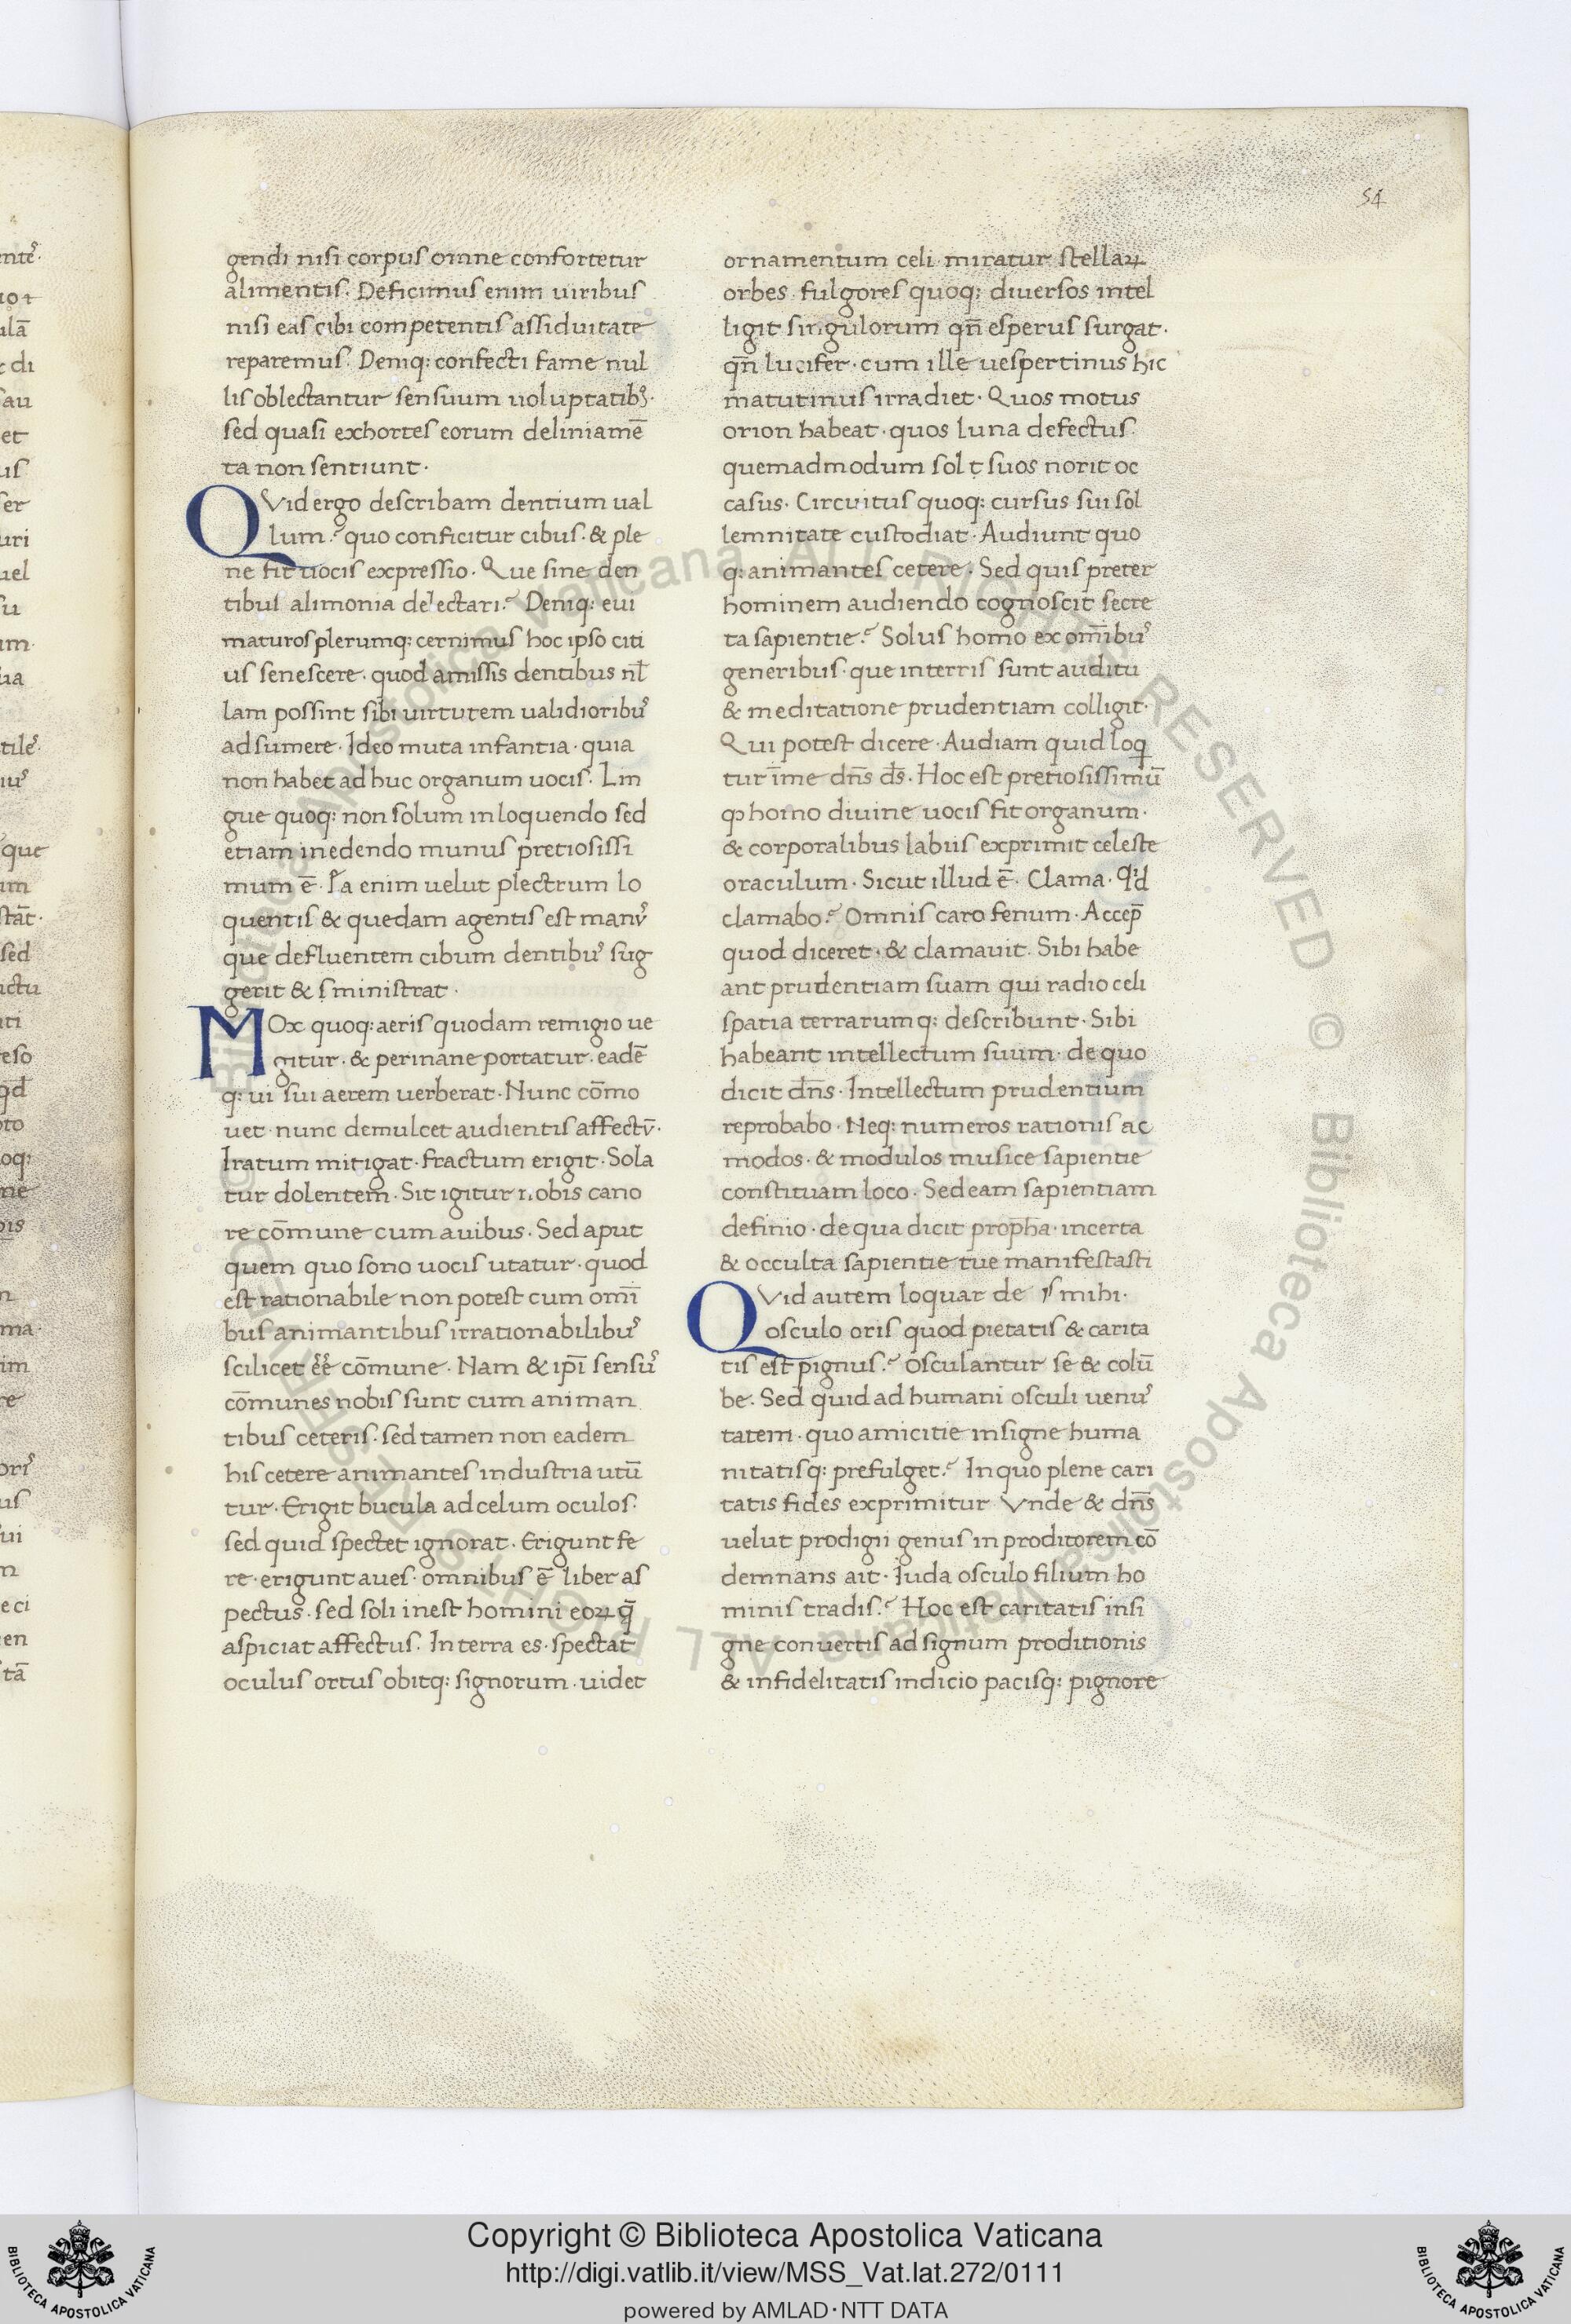 54
gendi nisi corpus omne confortetur
alimentis. Deficimus enim uiribus
nisi eas cibi competentis assiduitate
reparemus. Deniq: confecti fame nul
lis oblectantur sensuum uoluptatibꝰ.
sed quasi exhortes eorum deliniamē
ta non sentiunt.
QVid ergo describam dentium ual
lum? quo conficitur cibus. & ple
ne fit uocis expressio. Que sine den
tibus alimonia delectari? Deniq: eui
maturos plerumq: cernimus hoc ipso citi
us senescere. quod amissis dentibus nl̄
lam possint sibi uirtutem ualidioribuꝰ
adsumere. Ideo muta infantia. quia
non habet ad huc organum uocis. Lin
gue quoq: non solum in loquendo sed
etiam in edendo munus pretiosissi
mum ē. Ip̄a enim uelut plectrum lo
quentis & quedam agentis est manꝰ
que defluentem cibum dentibuꝰ sug
gerit & s̩ministrat.
MOx quoq: aeris quodam remigio ue
gitur. & per inane portatur. eadē
q: ui sui aerem uerberat. Nunc cōmo
uet. nunc demulcet audientis affectū.
Iratum mitigat. fractum erigit. Sola
tur dolentem. Sit igitur nobis cano
re cōmune cum auibus. Sed aput
quem quo sono uocis utatur. quod
est rationabile non potest cum omī
bus animantibus irrationabilibuꝰ
scilicet eē cōmune. Nam & ip̄i sensuꝰ
cōmunes nobis sunt cum animan
tibus ceteris. sed tamen non eadem
his cetere animantes industria utū
tur. Erigit bucula ad celum oculos.
sed quid spectet ignorat. Erigunt fe
re. erigunt aues. omnibus ē liber as
pectus. sed soli inest homini eoꝝ q̄
aspiciat affectus. In terra es. spectat
oculus ortus obitq: signorum. uidet
ornamentum celi. miratur stellaꝝ
orbes. fulgores quoq: diuersos intel
ligit singulorum qn̄ esperus surgat.
qn̄ lucifer. cum ille uespertinus hic
matutinus irradiet. Quos motus
orion habeat. quos luna defectus.
quemadmodum sol t̩ suos norit oc
casus. Circuitus quoq: cursus sui sol
lemnitate custodiat. Audiunt quo
q: animantes cetere. Sed quis preter
hominem audiendo cognoscit secre
ta sapientie? Solus homo ex om̄ibuꝰ
generibus. que in terris sunt auditu
& meditatione prudentiam colligit.
Qui potest dicere. Audiam quid loq̄
tur ī me dn̄s ds̄. Hoc est pretiosissimū
ꝙ homo diuine uocis fit organum.
& corporalibus labiis exprimit celeste
oraculum. Sicut illud ē. Clama. Qͥd
clamabo? Omnis caro fenum. Accep̄
quod diceret. & clamauit. Sibi habe
ant prudentiam suam qui radio celi
spatia terrarumq: describunt. Sibi
habeant intellectum suum. de quo
dicit dn̄s. Intellectum prudentium
reprobabo. Neq: numeros rationis ac
modos. & modulos musice sapientie
constituam loco. Sed eam sapientiam
definio. de qua dicit proph̄a. incerta
& occulta sapientie tue manifestasti
QVid autem loquar de mihi.
osculo oris quod pietatis & carita
tis est pignus? Osculantur se & colū
be. Sed quid ad humani osculi uenuꝰ
tatem. quo amicitie insigne huma
nitatisq: prefulget? In quo plene cari
tatis fides exprimitur. Vnde & dn̄s
uelut prodigii genus in proditorem cō
demnans ait. Iuda osculo filium ho
minis tradis? Hoc est caritatis insi
gne conuertis ad signum proditionis
& infidelitatis indicio pacisq: pignore
Copyright © Biblioteca Apostolica Vaticana
http://digi.vatlib.it/view/MSS_Vat.lat.272/0111
powered by AMLAD·NTT DATA